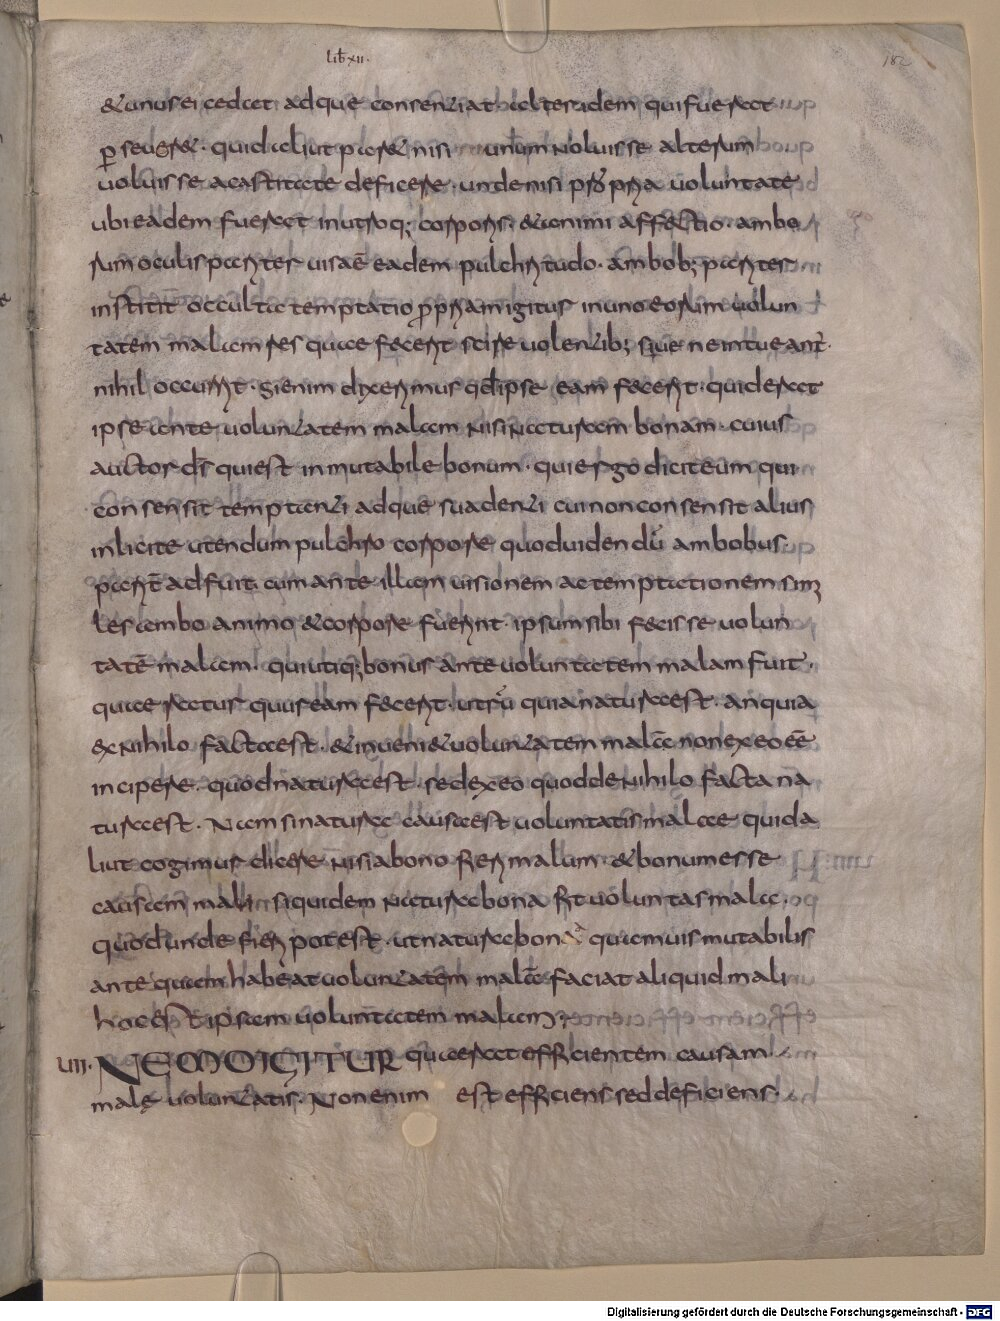 lib xii.
182
&unus ei cedat adque consentiat alter idem qui fuerat
p̱ seuer&. quid aliut par& nisi unum noluisse alterum
uoluisse a castitate deficere. unde nisi propria uoluntate
ubi eadem fuerat in utroq; corporis. & animi affectio. ambo
rum oculis pariter uisa ē eadem pulchritudo. ambob; pariter
institit occulta temptatio ppriam igitur in uno eorum uolun
tatem malam res quae fecerit scire uolentib; si bene intueant̄.
nihil occurrit. Si enim dixerimus qđ ipse eam fecerit. quid erat
ipse ante uoluntatem malam nisi natura bonam. cuius
auctor d̄s qui est inmutabile bonum. qui ergo dicit eum qui
consensit temptanti adque suadenti cui non consensit alius
inlicite utendum pulchro corpore quod uidendū ambobus.
parit̄ adfuit. cum ante illam uisionem ac temptationem simi
les ambo animo & corpore fuerint. ipsum sibi fecisse uolun
tatē malam. qui utiq; bonus ante uoluntatem malam fuit.
quaerat̄ur quur eam fecerit. utrū quia natura est. an quia
ex nihilo facta est. & inueni& uoluntatem malā non ex eo eē
incipere. quod natura est. sed ex eo quod de nihilo facta na
tura est. Nam si natura causa est uoluntatis malae quid a
liut cogimur dicere nisi a bono fieri malum. & bonum esse
causam mali. siquidem natura bona fit uoluntas mala.
quod unde fieri potest. ut natura bona quamuis mutabilis
ante quam habeat uoluntatem malā faciat aliquid mali
hoc est ipsam uoluntatem malam;
VII. NEMO IGITUR quaerat efficientem causam
malę uoluntatis. Non enim est efficiens sed deficiens.
Digitalisierung gefördert durch die Deutsche Forschungsgemeinschaft - DFG